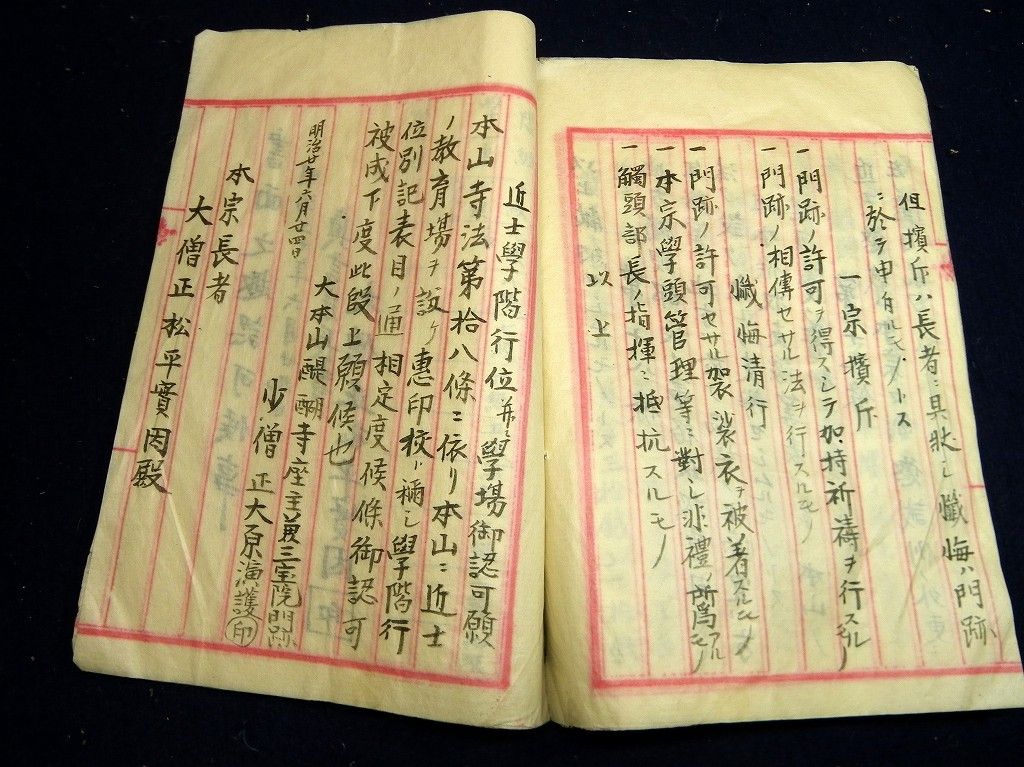 但擯斥ハ長者ニ具狀シ懺悔ハ門跡
ニ於テ申付ルモノトス
一宗擯斥
一門跡ノ許可ヲ得スシテ加持祈祷ヲ行スルモノ
一門跡ノ相傳セサル法ヲ行スルモノ
懺悔清行
一門跡ノ許可セサル袈裟衣ヲ被着スルモノ
一本宗學頭管理等ニ對シ非禮ノ所爲アルモノ
一觸頭部長ノ指揮ニ抵抗スルモノ
以上
近士學階行位并ニ學場御認可願
本山寺法第拾八條ニ依リ本山ニ近士
ノ教育場ヲ設ケ惠印校ト稱シ學階行
位別記表目ノ通相定度候條御認可
被成下度此段上願候也
大本山醍醐寺座主兼三宝院門跡
明治廿年六月廿四日
少僧正大原演護印
本宗長者
大僧正松平實因殿